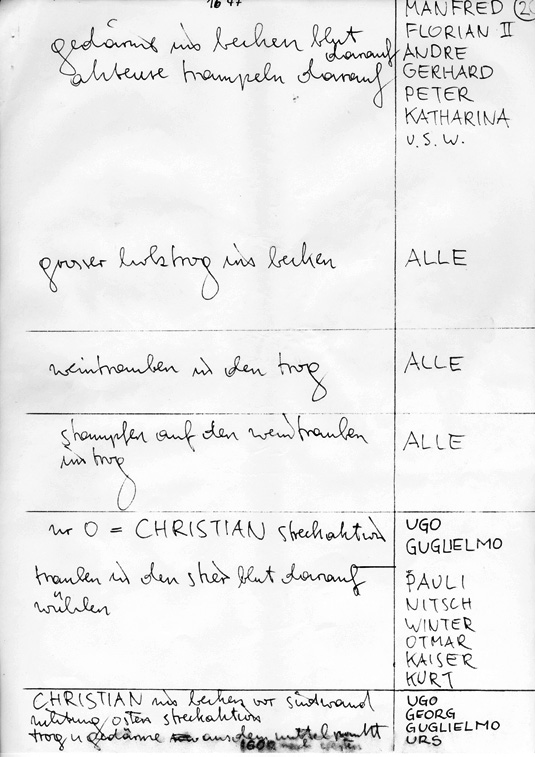 1647
gedärme ins becken blut
darauf
akteure trampeln darauf
MANFRED
FLORIAN II
ANDRE
GERHARD
PETER
KATHARINA
U.S.W.
grosser holztrog ins becken
ALLE
weintrauben in den trog
ALLE
stampfen auf den weintrauben
im trog
ALLE
nr 0 = CHRISTIAN streckaktion
UGO
GUGLIELMO
trauben in den stier blut darauf
wühlen
PAULI
NITSCH
WINTER
OTMAR
KAISER
KURT
CHRISTIAN ins becken vor südwand
richtung osten streckaktion
trog u gedärme aus dem mittelpunkt
UGO
GEORG
GUGLIELMO
URS